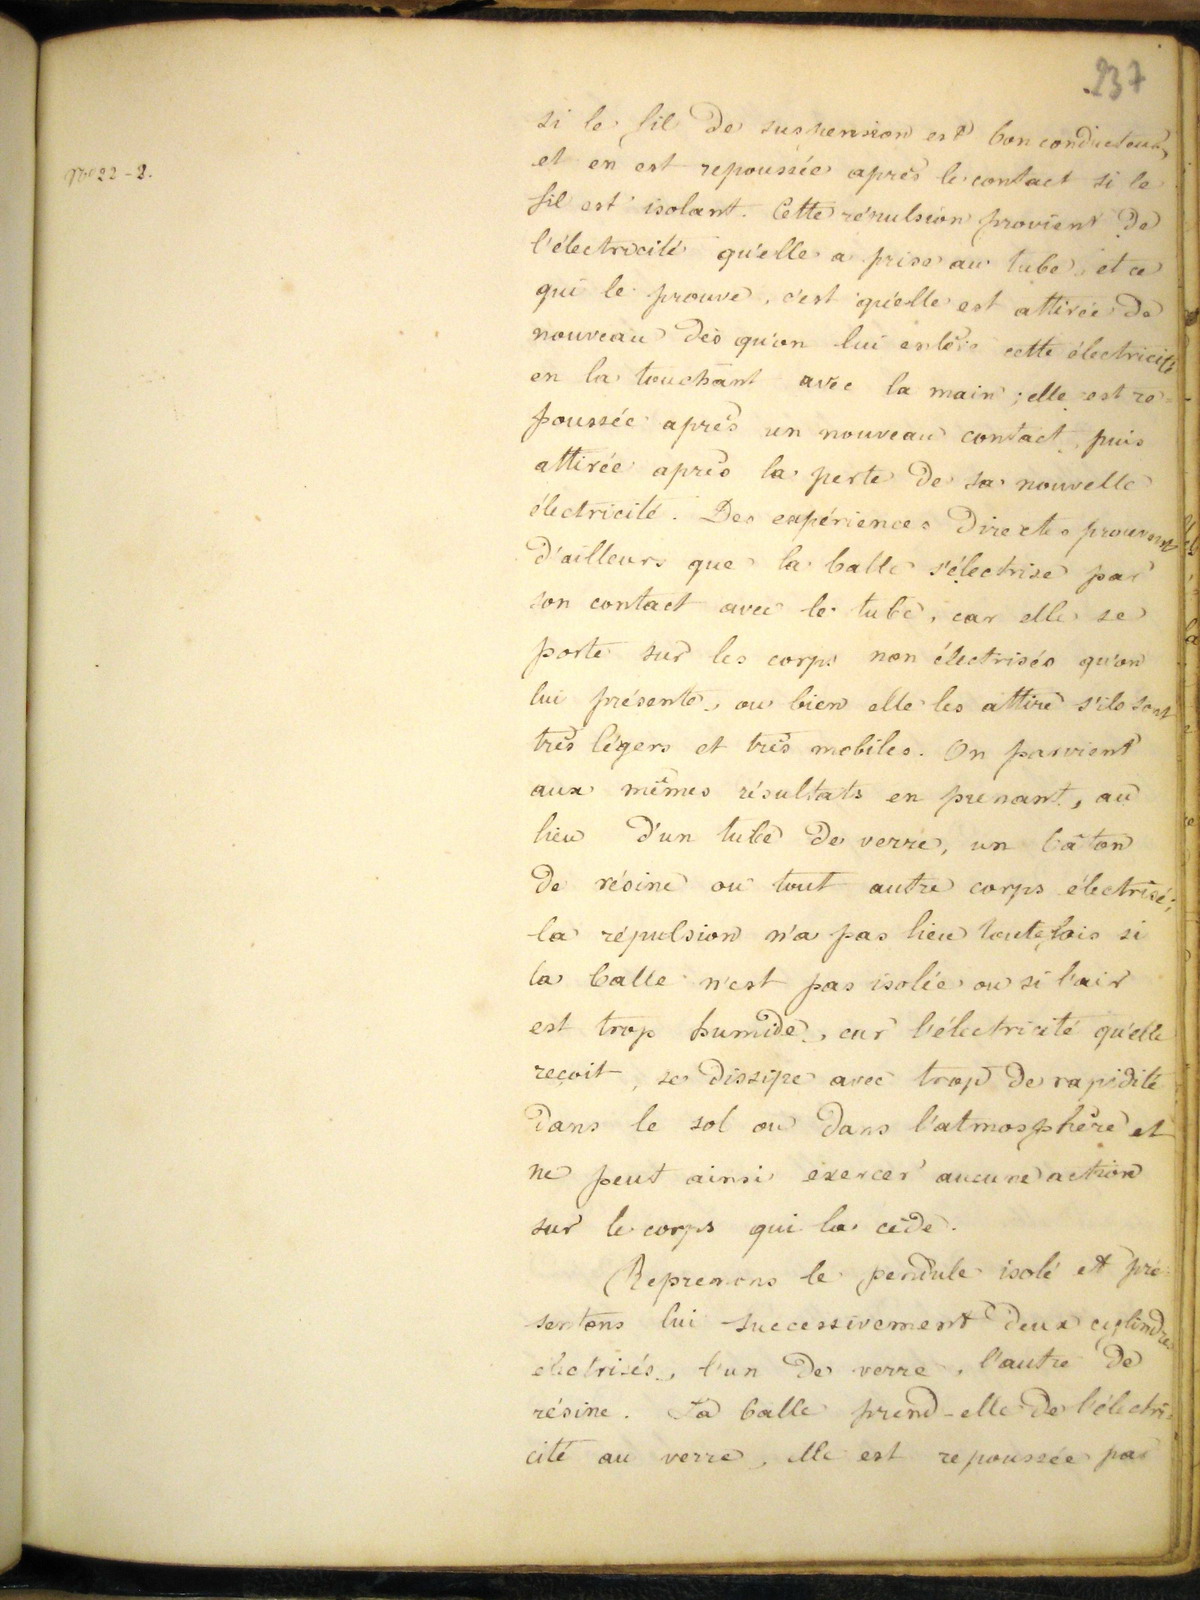 237
N° 22-2.
si le fil de suspension est bon conducteur,
et en est repoussée après le contact si le
fil est isolant. Cette répulsion provient de
l'électricité qu'elle a prise au tube, et ce
qui le prouve, c'est qu'elle est attirée de
nouveau dès qu'on lui enlève cette électricité
en la touchant avec la main ; elle est re-
poussée après un nouveau contact, puis
attirée après la perte de sa nouvelle
électricité. Des expériences directes prouvent
d'ailleurs que la balle s'électrise par
son contact avec le tube, car elle se
porte sur les corps non électrisés qu'on
lui présente, ou bien elle les attire s'ils sont
très légers et très mobiles. On parvient
aux mêmes résultats en prenant, au
lieu d'un tube de verre, un bâton
de résine ou tout autre corps électrisé;
la répulsion n'a pas lieu toutefois si
la balle n'est pas isolée ou si l'air
est trop humide, car l'électricité qu'elle
reçoit, se dissipe avec trop de rapidité
dans le sol ou dans l'atmosphère et
ne peut ainsi exercer aucune action
sur le corps qui la cède.
Reprenons le pendule isolé et pré-
sentons lui successivement deux cylindres
électrisés, l'un de verre, l'autre de
résine. La balle prend-elle de l'électri-
cité au verre, elle est repoussée par